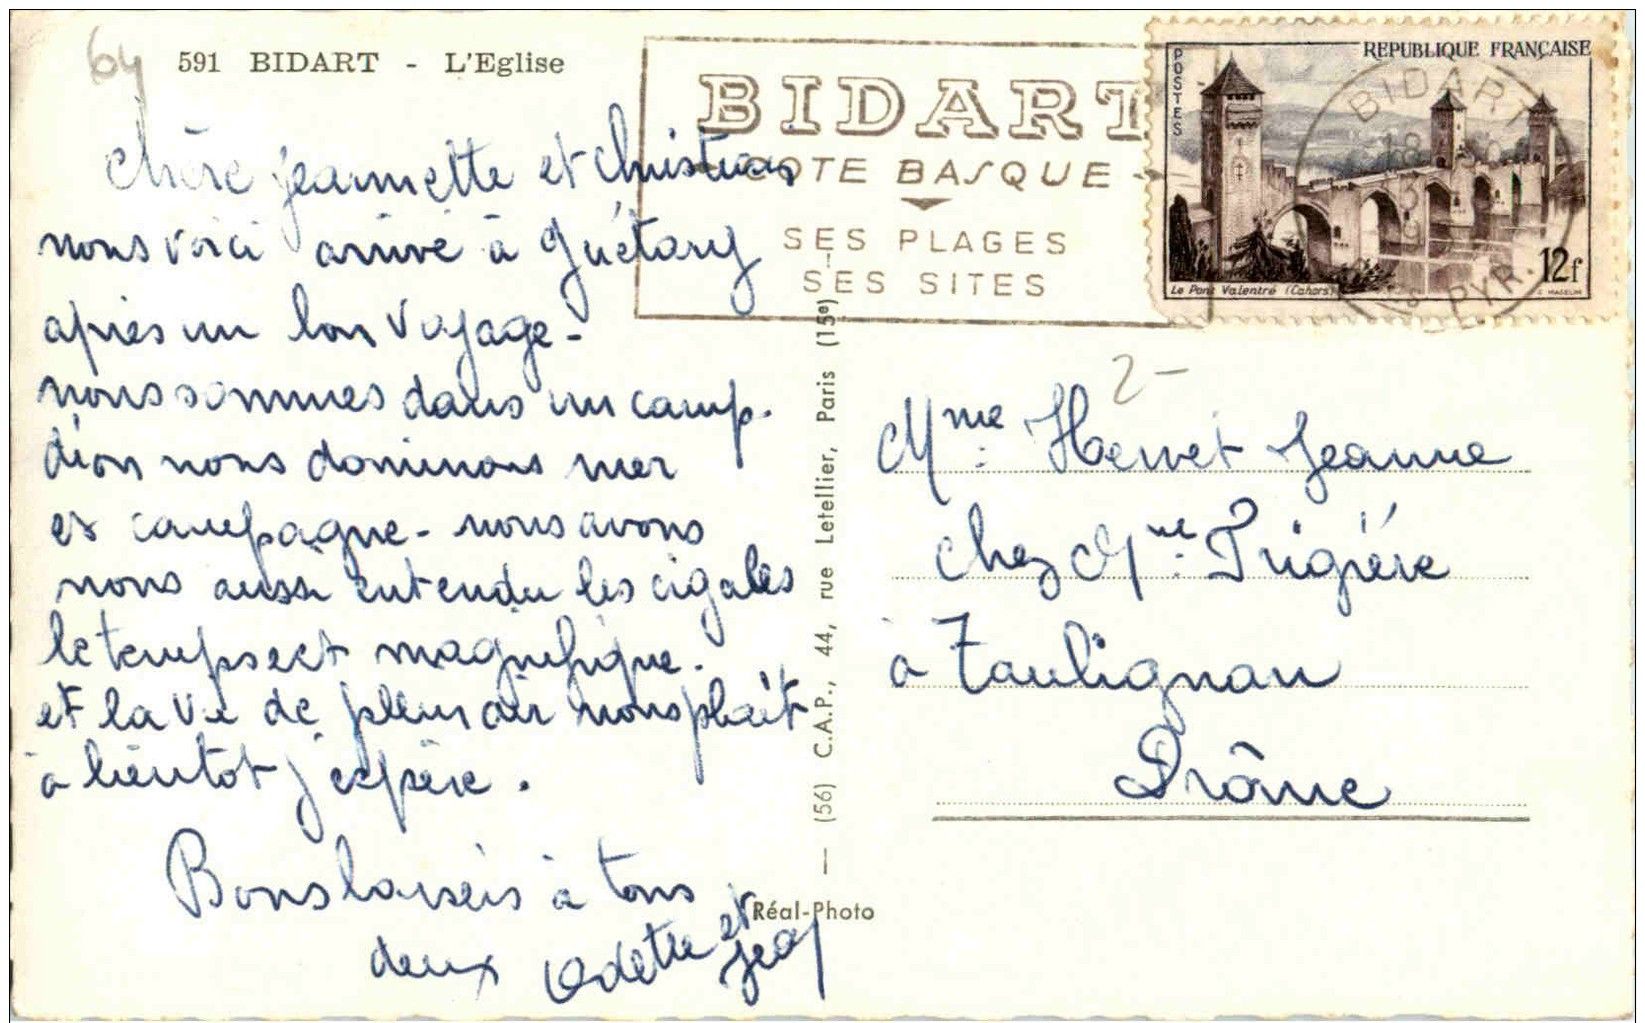 64
591 BIDART - L'Eglise
BIDART
COTE BASQUE
SES PLAGES
SES SITES
POSTES
REPUBLIQUE FRANÇAISE
Le Pont Valentré (Cahors)
12f
BIDART
PYR.
chère jeannette et christian
nous voici arrivé à guétary
après un bon voyage-
nous sommes dans un camp.
d'ion nous dominons mer
et campagne- nous avons
nous aussi entendu les cigales
le temps est magnifique.
et la vie de plein air nous plait
à bientot j'espère.
Bons baisers à tous
deux Odette et
Jean
(56) C.A.P., 44, rue Letellier, Paris (15e)
Réal-Photo
2-
Mme: Hervet Jeanne
chez Mme: Trigière
à Taulignan
Drôme